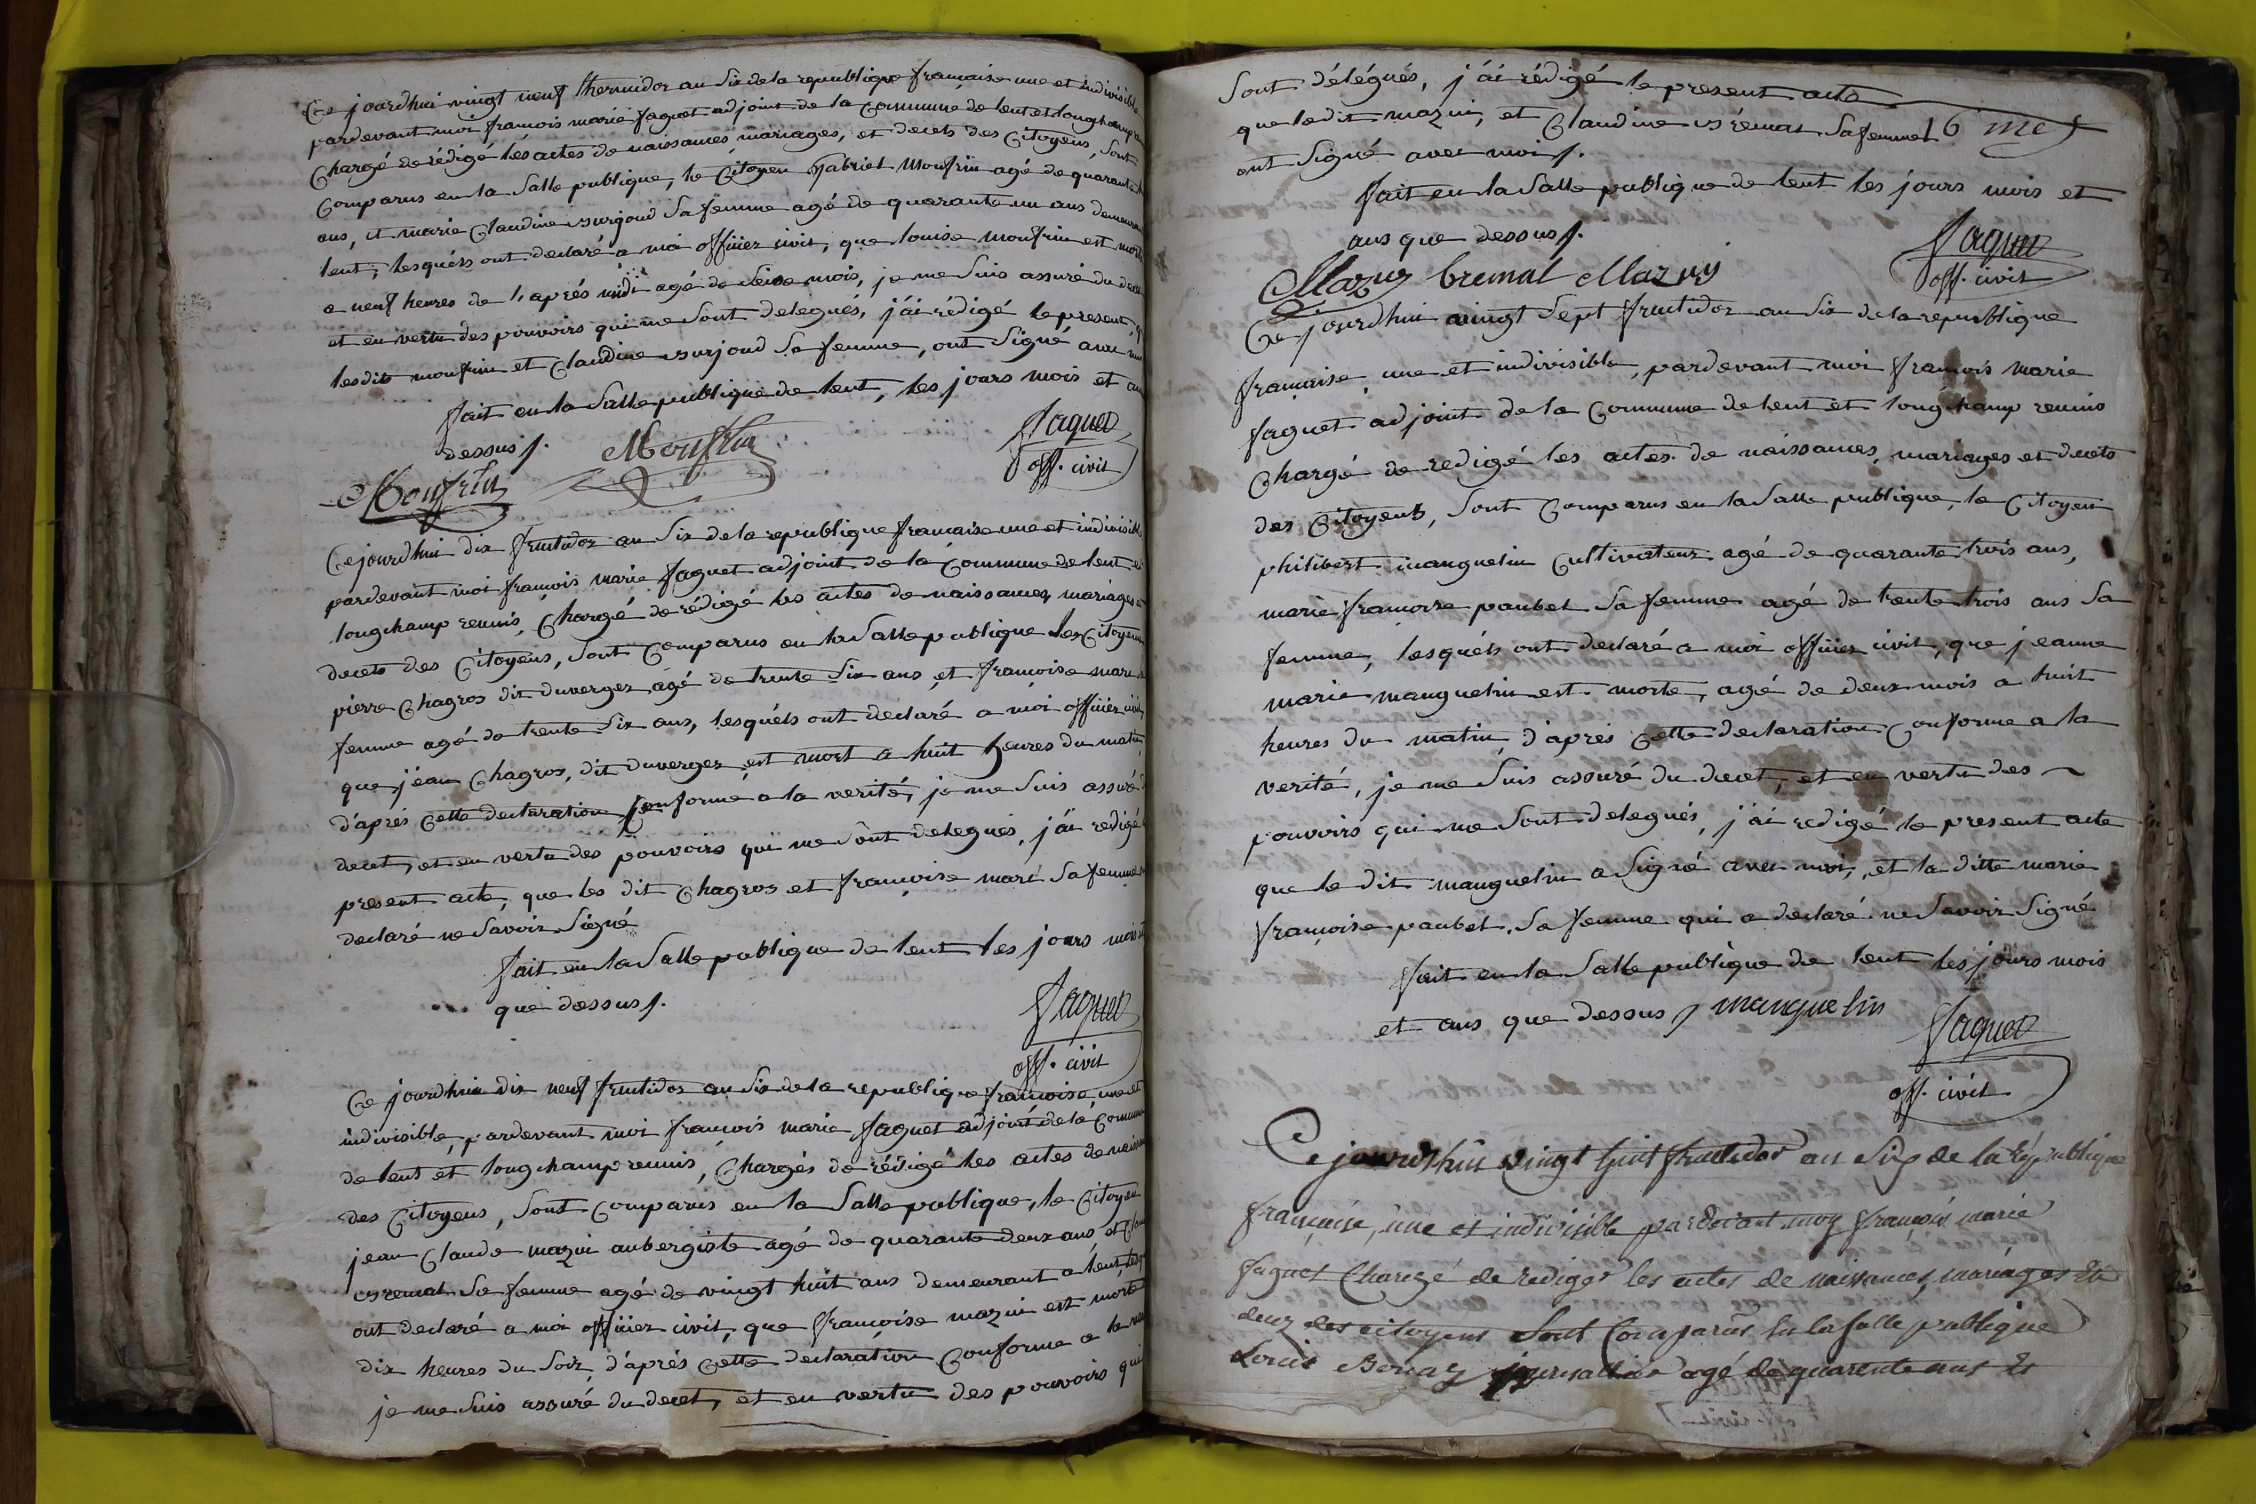 Ce jourdhui vingt neuf thermidor an Six dela republique francaise une et indivisible
pardevant moi francois marie faguet adjoint de la Commune de lent et longchamp
Chargé de rédigé les actes de naissances, mariages, et decets des Citoyens, Sont
Comparus en la Salle publique, le Citoyen gabriel Monfrin agé de quarante
ans, et marie Claudine surjoud Sa femme agé de quarante un ans demeurant
lent, lesquels ont declaré a moi officier civil, que louise monfrin est morte
a neuf heures de l'aprés midi agé de Seize mois, je me Suis assuré du decet
et en vertu des pouvoirs qui me Sont delegués, j'ai rédigé le present, q
lesdits monfrin et Claudine surjoud Sa femme, ont Signé avec moi
fait en la Salle publique de lent, les jours mois et an
dessus /.
Monfrin
Monfrin
faguet
off. civil
Ce jourdhui dix fructidor an Six de la republique francaise une et indivisible
pardevant moi francois marie faguet adjoint de la Commune de lent et
longchamp reunis, Chargé de rédigé les actes de naissances, mariages et
decets des Citoyens, Sont Comparus en la Salle publique les Citoyens
pierre Chagros dit duverger agé de trente Six ans et françoise mare sa
femme agé de trente Six ans, lesquéls ont declaré a moi officier civil,
que jean Chagros, dit duverger est mort a huit heures du matin,
d'aprés Cette declaration Conforme a la verité, je me Suis assuré d
decet, et en vertu des pouvoirs qui me Sont delegués, j'ai redigé
present acte, que les dit Chagros et françoise mare Sa femme
declaré ne Savoir Signé
fait en la Salle publique de lent les jours mois et
que dessus /.
faguet
off. civil
Ce jourdhui dix neuf fructidor an Six de la republique francaise, une et
indivisible, pardevant moi francois marie faguet adjoint de la Commune
de lent et longchamp reunis, Chargés de rédigé les actes de naiss
des Citoyens, Sont Comparus en la Salle publique, le Citoyen
jean Claude mazui aubergiste agé de quarante deux ans et Clau
Sa femme agé de vingt huit ans demeurant a lent, lesq
ont declaré a moi officier civil, que françoise mazui est morte
dix heures du Soir, d'aprés Cette declaration Conforme a la ver
je me Suis assuré du decet, et en vertu des pouvoirs qui
Sont délégués, j'ai rédigé le present acte
que ledit mazui, et Claudine Sa femme
16 me
ont Signé avec moi /.
fait en la Salle publique de lent les jours mois et
ans que dessus /.
Mazuy bremal Mazuy
faguet
off. civil
Ce jourdhui vingt Sept fructidor an Six de la republique
française, une et indivisible, pardevant moi francois marie
faguet adjoint de la Commune de lent et longchamp reunis
Chargé de redigé les actes de naissances, mariages et decets
des Citoyens, Sont Comparus en la Salle publique, le Citoyen
philibert manguelin Cultivateur agé de quarante trois ans,
marie françoise paubel Sa femme agé de trente trois ans Sa
femme, lesquéls ont declaré a moi officier civil, que jeanne
marie manguelin est morte, agé de deux mois a huit
heures du matin, d'aprés Cette declaration Conforme a la
verité, je me Suis assuré du decet, et en vertu des
pouvoirs qui me Sont delegués, j'ai redigé le present acte
que le dit manguelin a Signé avec moi, et la ditte marie
françoise paubel, Sa femme qui a declaré ne Savoir Signé
fait en la Salle publique de lent les jours mois
et ans que dessus / manguelin
faguet
off. civil
Ce jourdhui vingt huit fructidor an Six de la République
française, une et indivisible pardevant moy françois marie
faguet Chargé de rediger les actes de naissances, mariages et
decez des citoyens Sont Comparus En la Salle publique
Louis journallier agé de quarente ans Et